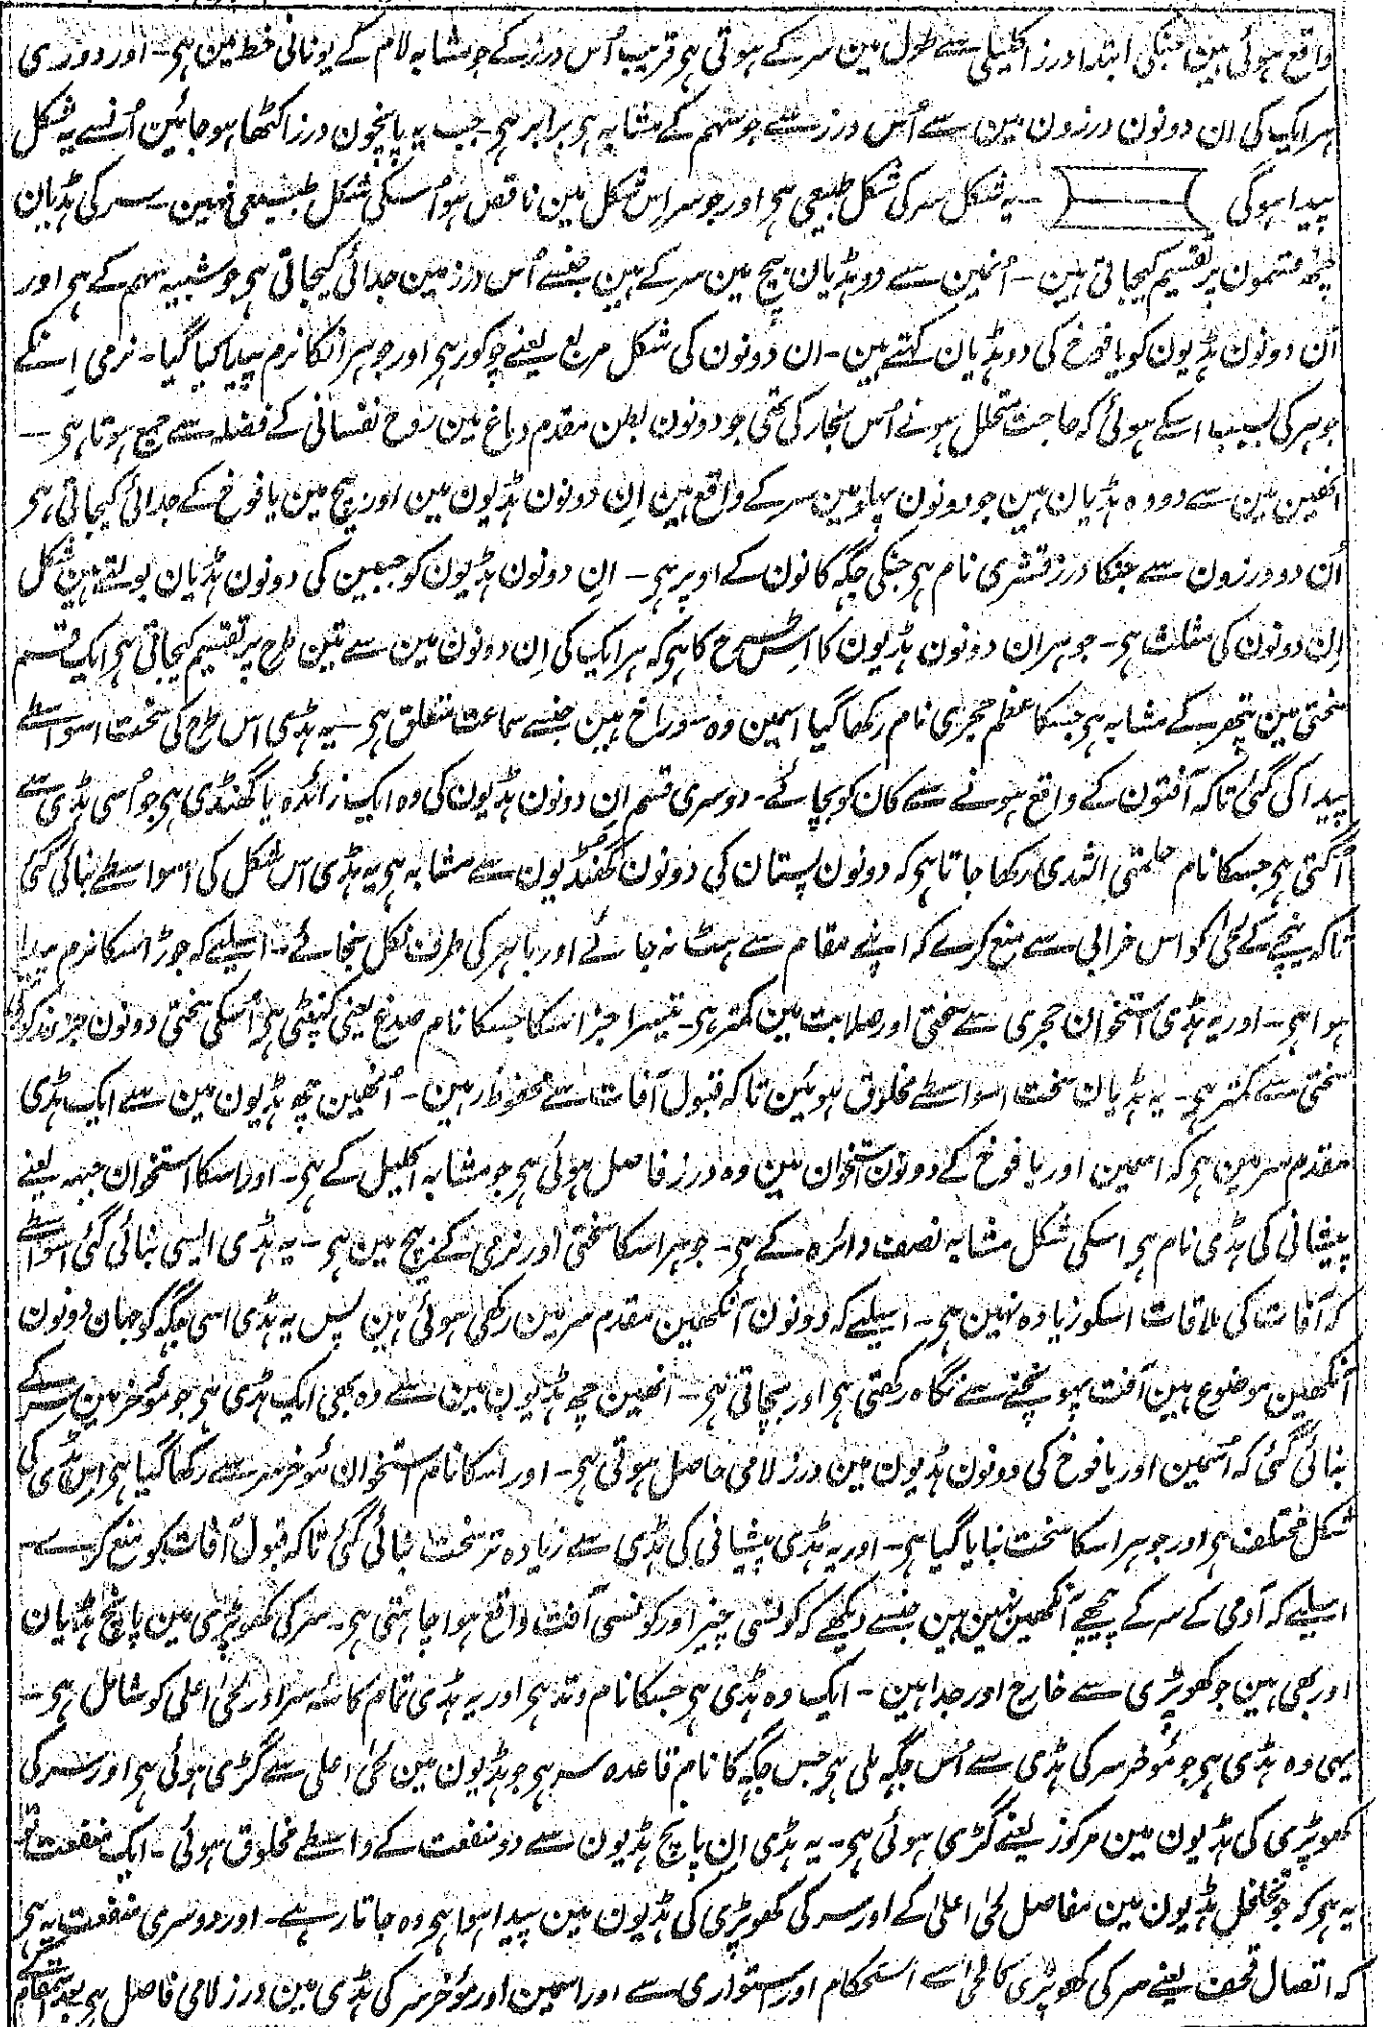 واقع ہوئی ہین جنکی ابتدا درز اکلیلی سے طول مین سر کے ہوتی ہی قریب اُس درز کے جو مشابہ لام کے یونانی خط مین ہی۔ اور دوری
ہر ایک کی ان دونون درزون مین سے اُس درز سے جو سہم کے مشابہ ہی برابر ہی۔ جب یہ پانچون درز اکٹھا ہو جائین اُنسے یہ شکل
پیدا ہوگی ۔ یہ شکل سر کی شکل طبیعی ہی اور جو سر اس شکل مین ناقص ہو اُسکی شکل طبیعی نہین۔ سر کی ہڈیان
چھ قسمون پر تقسیم کیجاتی ہین۔ اُنمین سے دو ہڈیان بیچ مین سر کے ہین جنسے اُس درز مین جدائی کیجاتی ہی جو شبیہ سہم کے ہی اور
ان دونون ہڈیون کو یافوخ کی دو ہڈیان کہتے ہین۔ ان دونون کی شکل مربع یعنے چوکور ہی اور جوہر انکا نرم پیدا کیا گیا۔ نرمی اِنکے
جوہر کی بسبب اسکے ہوئی کہ حاجت متحلل ہونے اُس بخار کی تھی جو دونون بطن مقدم دماغ مین روح نفسانی کے فضلہ سے جمع ہوتا ہی۔
انھین مین سے دو وہ ہڈیان ہین جو دونون پہلو مین سر کے واقع ہین اِن دونون ہڈیون مین اور بیچ مین یافوخ کے جدائی کیجاتی ہی
اُن دو درزون سے جنکا درز قشری نام ہی جنکی جگہ کانون کے اوپر ہی۔ ان دونون ہڈیون کو جبین کی دونون ہڈیان بولتے ہین شکل
اِن دونون کی مثلث ہی۔ جوہر ان دونون ہڈیون کا اس طرح کا ہی کہ ہر ایک کی اِن دونون مین سے تین طرح پر تقسیم کیجاتی ہی ایک قسم
سختی مین پتھر کے مشابہ ہی جسکا عظم حجری نام رکھا گیا اسمین وہ سوراخ ہین جنسے سماعت متعلق ہی۔ یہ ہڈی اس طرح کی سخت اسواسطے
پیدا کی گئی تاکہ آفتون کے واقع ہونے سے کان کو بچائے۔ دوسری قسم ان دونون ہڈیون کی وہ ایک زائدہ یا گھنڈی ہی جو اُسی ہڈی سے
اُگتی ہی جسکا نام حلمتی الثدی رکھا جاتا ہی کہ دونون پستان کی دونون گھنڈیون سے مشابہ ہی یہ ہڈی اس شکل کی اسواسطے بنائی گئی
تاکہ نیچے کے لحی کو اس خرابی سے منع کرے کہ اپنے مقام سے ہٹ نہ جائے اور باہر کی طرف نکل نجائے۔ اسلیے کہ جوڑ اسکا نرم پیدا
ہوا ہی۔ اور یہ ہڈی استخوان حجری سے سختی اور صلابت مین کمتر ہی۔ تیسرا جز اسکا جسکا نام صدغ یعنی کنپٹی ہی اُسکی سختی دونون جز مذکور کی
سختی سے کمتر ہی۔ یہ ہڈیان سخت اسواسطے مخلوق ہوئین تاکہ قبول آفات سے محفوظ رہین۔ اُنھین چھ ہڈیون مین سے ایک ہڈی
مقدم سر مین ہی کہ اسمین اور یافوخ کے دونون استخوان مین وہ درز فاصل ہوئی ہی جو مشابہ اکلیل کے ہی۔ اور اسکا استخوان جبہہ یعنے
پیشانی کی ہڈی نام ہی اسکی شکل مشابہ نصف دائرہ کے ہی۔ جوہر اسکا سختی اور نرمی کے بیچ مین ہی۔ یہ ہڈی ایسی بنائی گئی اسواسطے
کہ آفات کی ملاقات اسکو زیادہ نہین ہی۔ اسلیے کہ دونون آنکھین مقدم سر مین رکھی ہوئی ہین پس یہ ہڈی اسی جگہ کو جہان دونون
آنکھین موضوع ہین آفت پہونچنے سے نگاہ رکھتی ہی اور بچاتی ہی۔ انھین چھ ہڈیون مین سے وہ بھی ایک ہڈی ہی جو مؤخر مین سر کے
بنائی گئی کہ اُسمین اور یافوخ کی دونون ہڈیون مین درز لامی حاصل ہوتی ہی۔ اور اسکا نام استخوان مؤخر سر سے رکھا گیا ہی اس ہڈی کی
شکل مختلف ہی اور جوہر اسکا سخت بنایا گیا ہی۔ اور یہ ہڈی پیشانی کی ہڈی سے زیادہ تر سخت بنائی گئی تاکہ قبول آفات کو منع کرے۔
اسلیے کہ آدمی کے سر کے پیچھے آنکھین نہین ہین جنسے دیکھے کہ کونسی چیز اور کونسی آفت واقع ہوا چاہتی ہی۔ سر کی کھوپڑی مین پانچ ہڈیان
اور بھی ہین جو کھوپڑی سے خارج اور جدا ہین۔ ایک وہ ہڈی ہی جسکا نام وتد ہی اور یہ ہڈی تمام کاسۂ سر اور لحی اعلی کو شامل ہی۔
یہی وہ ہڈی ہی جو مؤخر سر کی ہڈی سے اُس جگہ ملی ہی جس جگہ کا نام قاعدہ سر ہی جو ہڈیون مین لحی اعلی سے گڑی ہوئی ہی اور سر کی
کھوپڑی کی ہڈیون مین مرکوز یعنے گڑی ہوئی ہی۔ یہ ہڈی اِن پانچ ہڈیون سے دو منفعت کے واسطے مخلوق ہوئی۔ ایک منفعت تو
یہ ہی کہ جو تخلخل ہڈیون مین مفاصل لحی اعلیٰ کے اور سر کی کھوپڑی کی ہڈیون مین پیدا ہوا ہی وہ جاتا رہے۔ اور دوسری منفعت یہ ہی
کہ اتصال قحف یعنے سر کی کھوپڑی کا لحی اسے استحکام اور استواری سے اور اسمین اور مؤخر سر کی ہڈی مین درز لامی فاصل ہی بعد